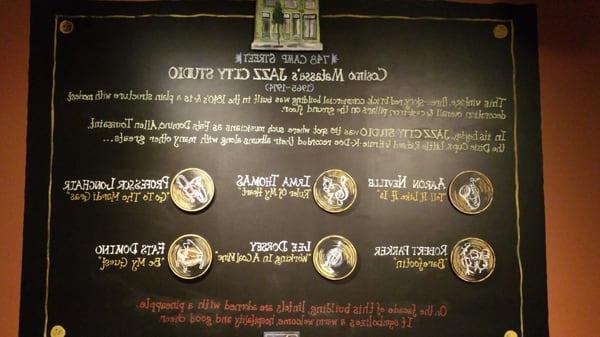 748 CAMP STREET
Cosimo Matassa's JAZZ CITY STUDIO
(1965-1974)
This vintage, three-story red brick commercial building was built in the 1840's & is a plain structure with modest
decoration overall & cast-iron pillars on the ground floor.
In its heyday, JAZZ CITY STUDIO was the spot where such musicians as Fats Domino, Allen Toussaint,
the Dixie Cups, Little Richard & Ernie K-Doe recorded their albums along with many other greats...
AARON NEVILLE
"Tell It Like It Is"
IRMA THOMAS
"Ruler Of My Heart"
PROFESSOR LONGHAIR
"Go To The Mardi Gras"
ROBERT PARKER
"Barefootin"
LEE DORSEY
"Working In A Coal Mine"
FATS DOMINO
"Be My Guest"
On the facade of this building, lintels are adorned with a pineapple.
It symbolizes a warm welcome, hospitality and good cheer